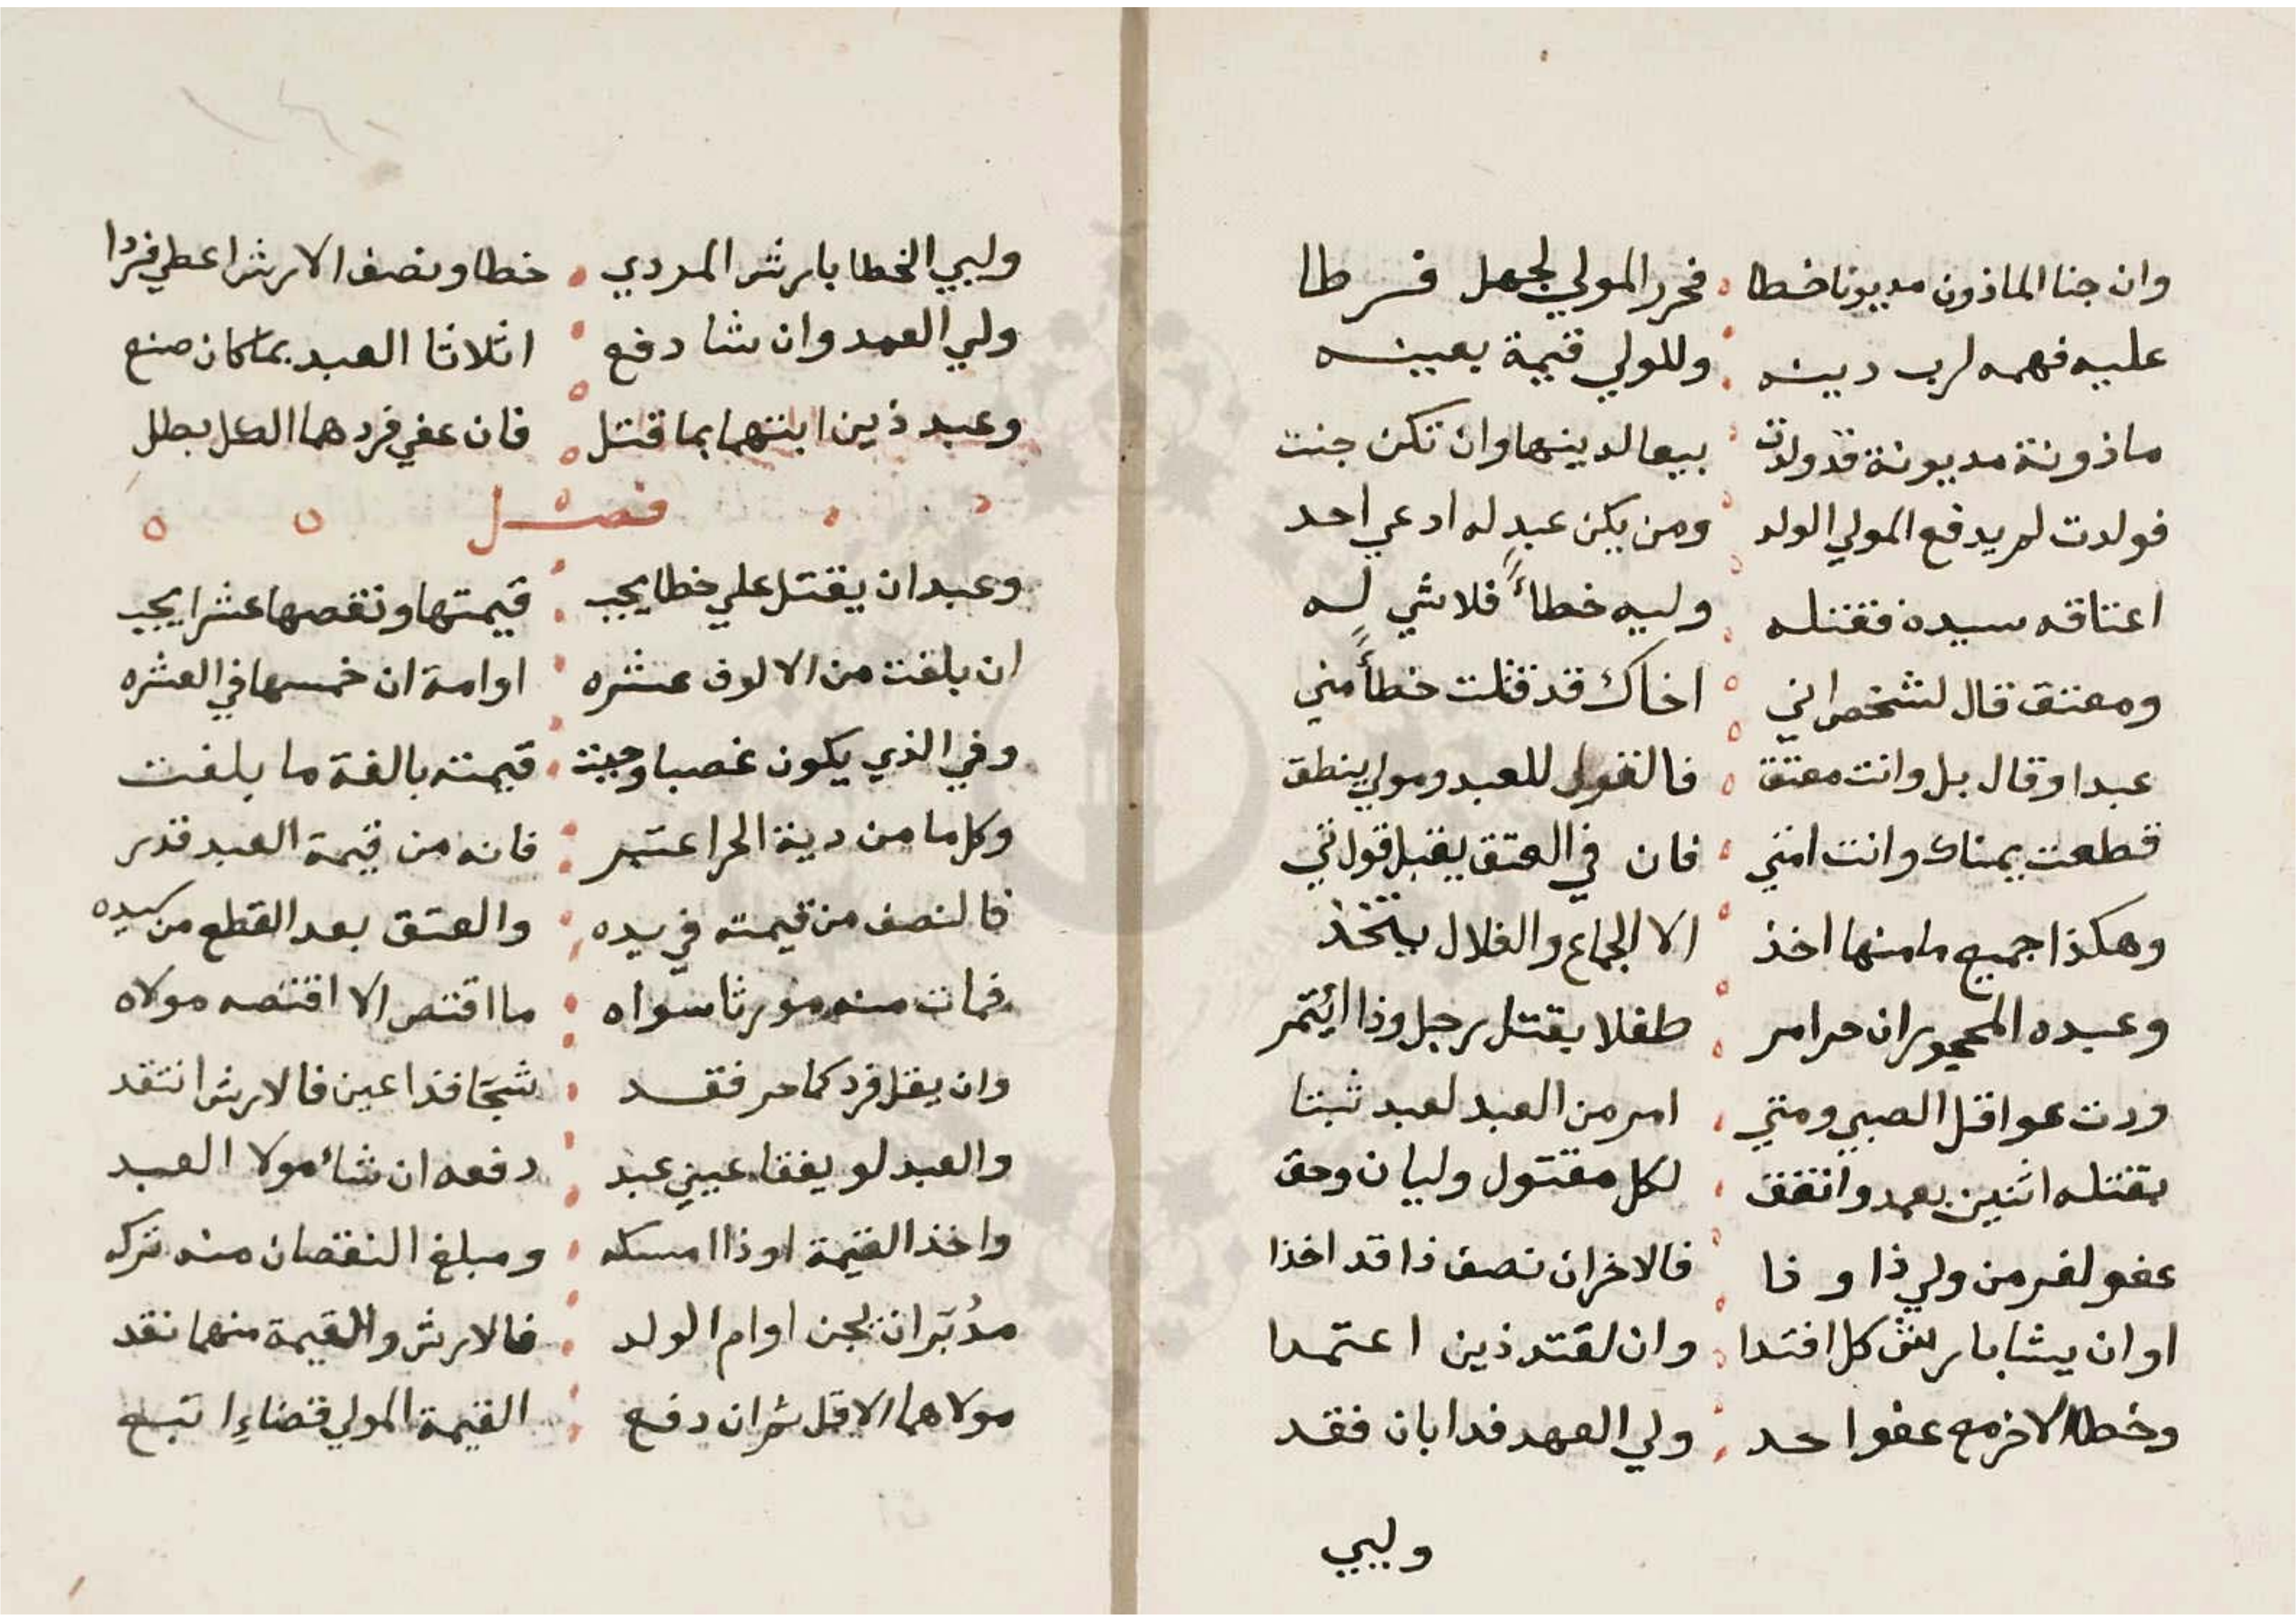 وان جنا الماذون مديونا خطا فحرر المولي لجهل فرطا
عليه فهمه لرب دينه وللولي قيمة بعينه
ماذونة مديونة قد ولدت بيعا لدينها وان تكن جنت
فولدت لم يدفع المولي الولد ومن يكن عبد له ادعي احد
اعتاقه سيده فقتله وليه خطاءً فلا شي له
ومعتق قال لشخص اني اخاك قد قتلت خطأً مني
عبدا وقال بل وانت معتق فالقول للعبد ومولي ينطق
قطعت يمناك وانت امتي فان في العتق يقبل قول تي
وهكذا جميع ما منها اخذ الا الجماع والغلال يتخذ
وعبده المحجور ان حرا امر طفلا بقتل رجل وذا ائتمر
ودت عواقل الصبي ومتي امر من العبد لعبد ثبتا
بقتله اثنين بعمد واتفق لكل مقتول وليان وحق
عفو لفر من ولي ذا و ذا فالاخران نصف ذا قد اخذا
او ان يشا بارش كل افتدا وان لقتد ذين اعتمدا
وخطا الاخر مع عفو احد ولي العهد فدا بان فقد
وليي
وليي الخطا بارش المردي خطا ونصف الارش اعطي فردا
ولي العمد وان شا دفع اثلاثا العبد بما كان صنع
وعبد ذين ابنتهما بما قتل فان عفي فردهما الكل بطل
فصل
وعبد ان يقتل علي خطا يجب قيمتها ونقصها عشرا يجب
ان بلغت من الالوف عشره او امة ان خمسها في العشره
وفي الذي يكون غصبا وجبت قيمته بالغة ما بلغت
وكل ما من دية الحر اعتبر فانه من قيمة العبد قدر
فالنصف من قيمته في يده والعتق بعد القطع من سيده
فمات منه مورثا سواه ما اقتص الا اقتصه مولاه
وان يقل فردكما حر فقد شجا فذا عين فالارش انتقد
والعبد لو يفقا عيني عبد دفعه ان شاء مولا العبد
واخذ القيمة او ذا امسكه ومبلغ النقصان منه تركه
مدُبّر ان يجن او ام الولد فالارش والقيمة منهما نقد
مولاهما الاقل ثم ان دفع القيمة المولي قضاءِ اتبع